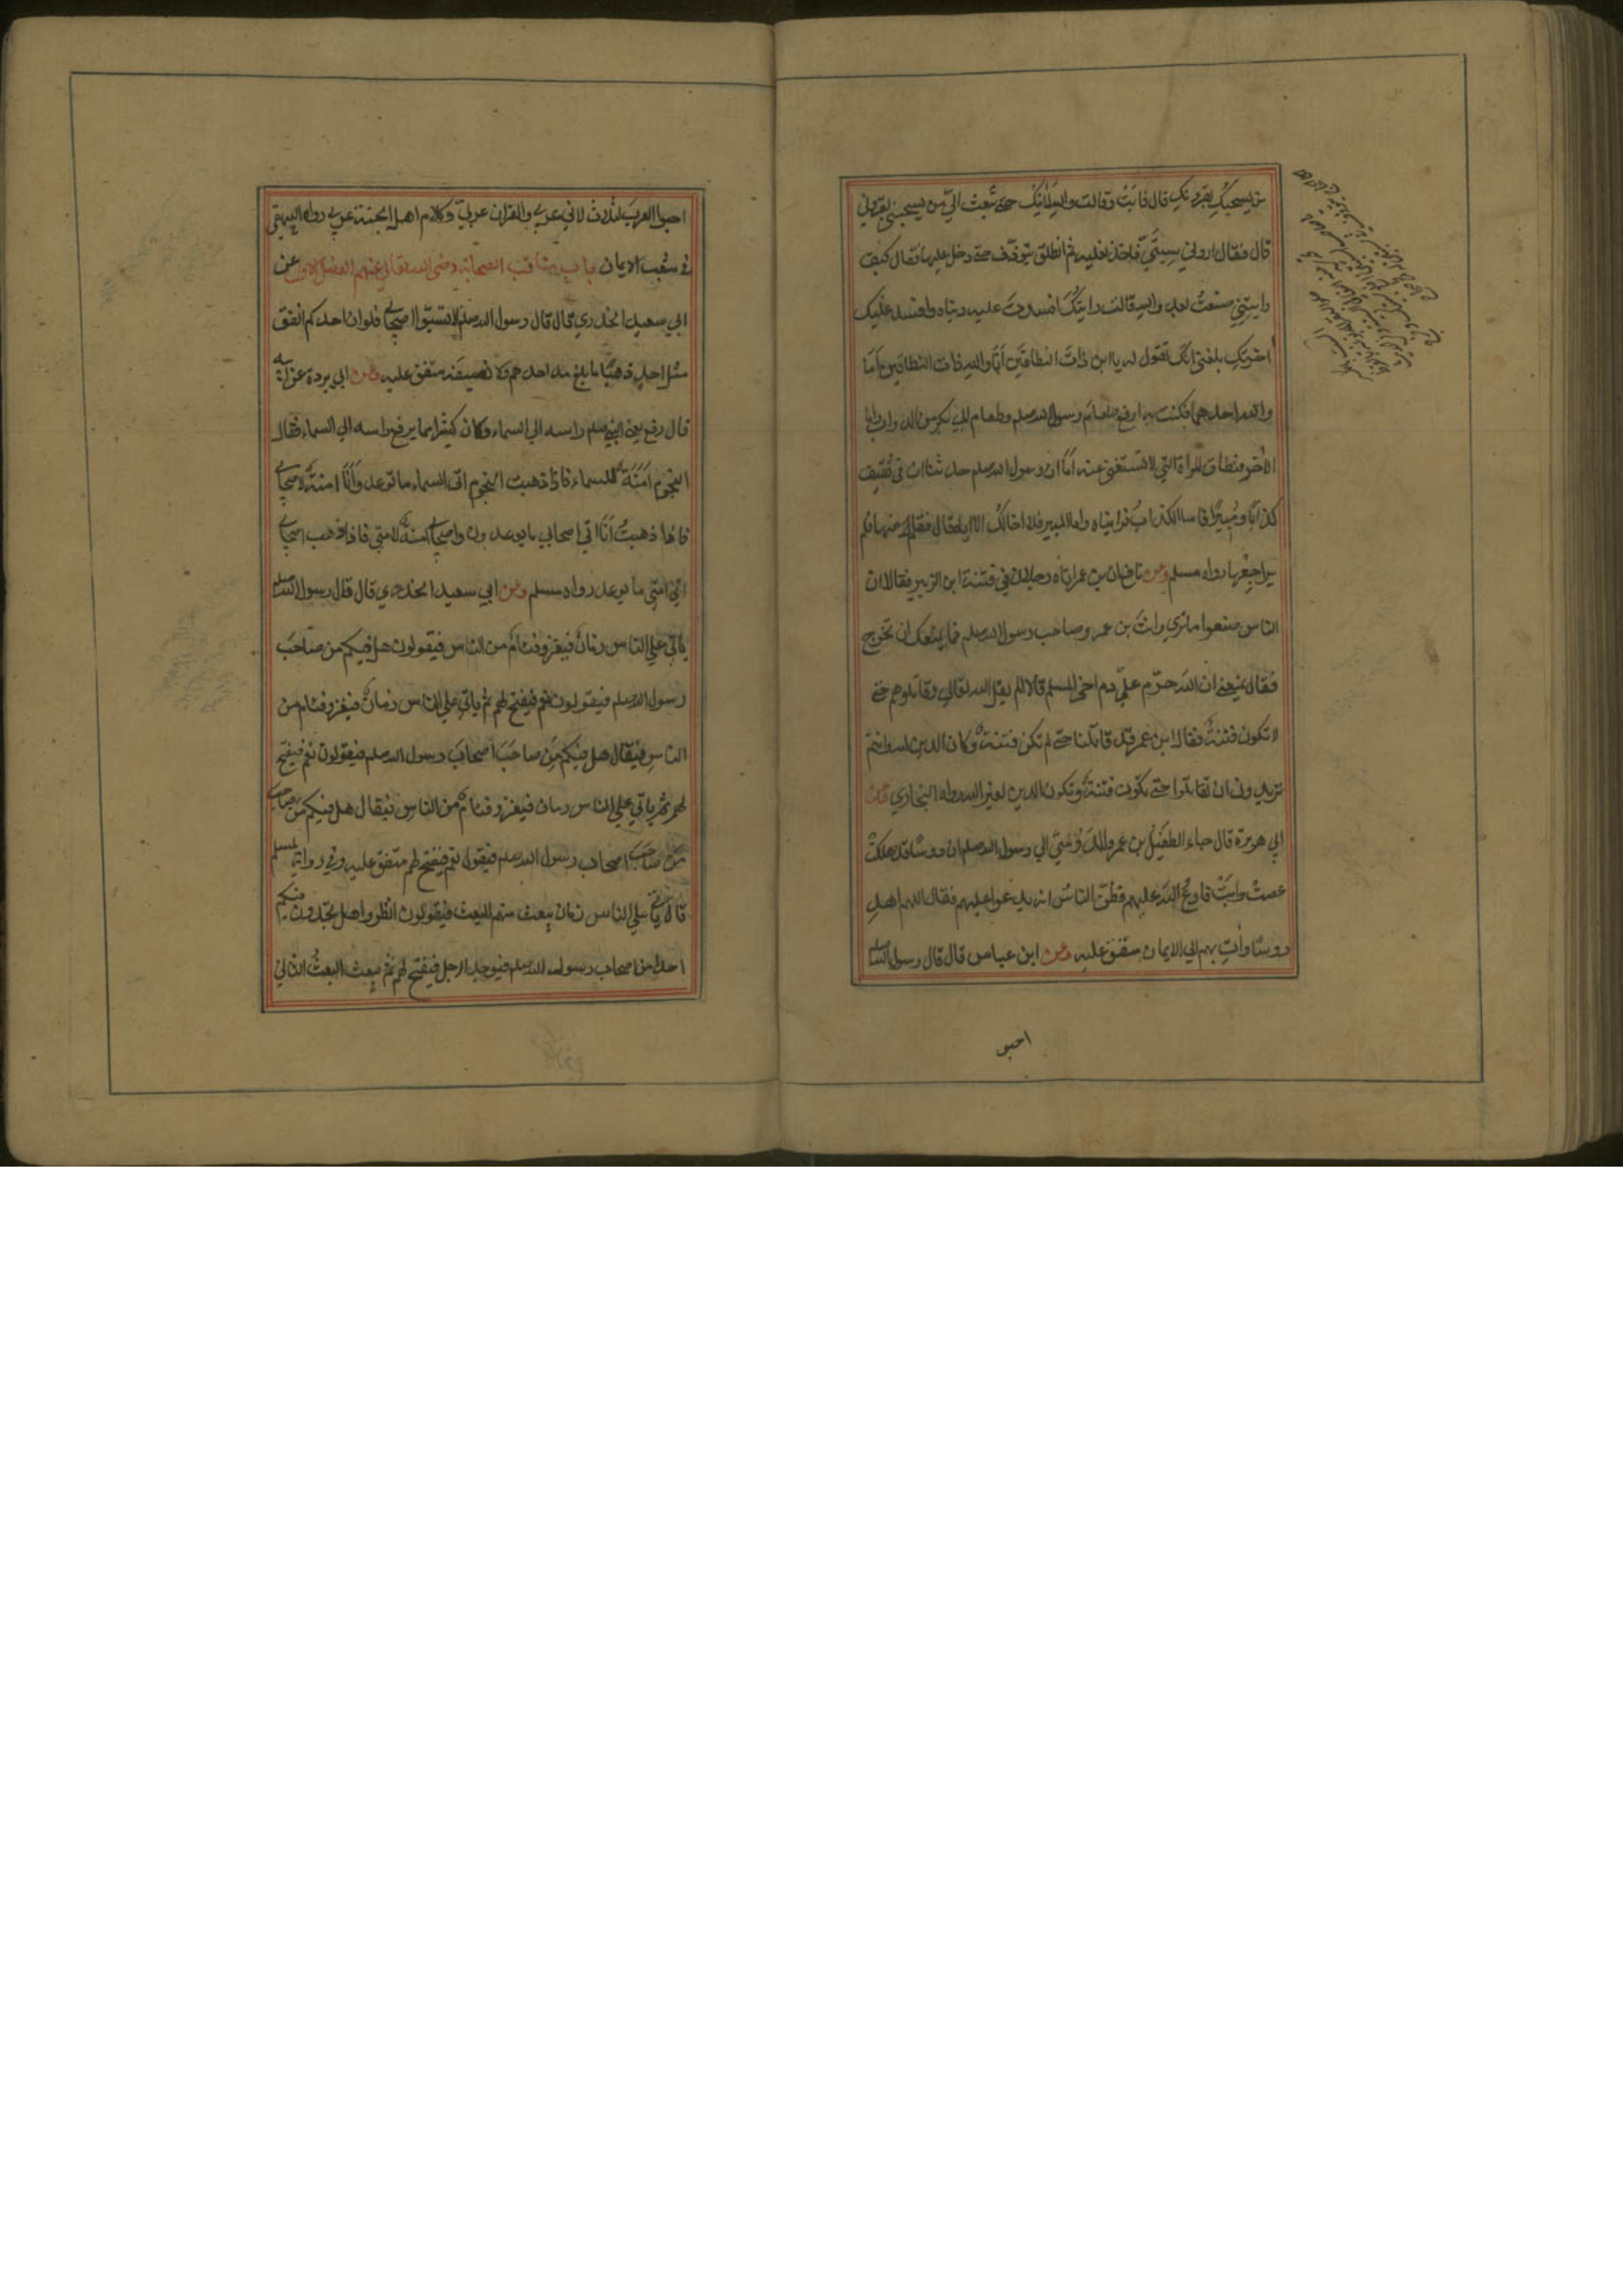 من يسحبك بقرونك قال فابت وقالت والله لا اتيك حتى تبعث الي من يسحبني بقروني
قال فقال اروني سبتي فاخذ نعليه ثم انطلق يتوذف حتى دخل عليها فقال كيف
رايتني صنعت بعدو الله قالت رايتك افسدت عليه دنياه وافسد عليك
اخرتك بلغني انك تقول له يا ابن ذات النطاقين انا والله ذات النطاقين اما
والله احدهما فكنت به ارفع طعام رسول الله صلعم وطعام ابي بكر من الدواب واما
الاخر فنطاق المراة التي لا تستغني عنه اما ان رسول الله صلعم حدثنا ان في ثقيف
كذابا ومبيرا فاما الكذاب فرايناه واما المبير فلا اخالك الا اياه قال فقام عنها فلم
يراجعها رواه مسلم وعن نافع ان بن عمر اتاه رجلان في فتنة ابن الزبير فقالا ان
الناس صنعوا ما تري وانت بن عمر وصاحب رسول الله صلعم فما يمنعك ان تخرج
فقال يمنعني ان الله حرم علي دم اخي المسلم قالا الم يقل الله تعالي وقاتلوهم حتى
لا تكون فتنة فقال ابن عمر قد قاتلنا حتى لم تكن فتنة وكان الدين لله وانتم
تريدون ان تقاتلوا حتى تكون فتنة وتكون الدين لغير الله رواه البخاري وعن
ابي هريرة قال جاء الطفيل بن عمرو الدوسي الي رسول الله صلعم ان دوسا قد هلكت
عصت وابت فادع الله عليهم فظن الناس انه يدعوا عليهم فقال اللهم اهد
دوسا وات بهم الي الايمان متفق عليه وعن ابن عباس قال قال رسول الله صلعم
احبو
احبوا العرب لثلاث لاني عربي والقران عربي وكلام اهل الجنة عربي رواه البيهقي
في شعب الايمان باب مناقب الصحابة رضى الله تعالي عنهم الفصل الاول عن
ابي سعيد الخدري قال قال رسول الله صلعم لا تسبوا اصحابي فلو ان احدكم انفق
مثل احد ذهبا ما بلغ مد احدهم ولا نصيفه متفق عليه وعن ابي بردة عن ابيه
قال رفع يعني النبي صلعم راسه الي السماء وكان كثيرا مما يرفع راسه الي السماء فقال
النجوم امنة للسماء فاذا ذهبت النجوم اتى السماء ما توعد وانا امنة لاصحابي
فاذا ذهبت انا اتي اصحابي ما يوعدون واصحابي امنة لامتي فاذا ذهب اصحابي
اتي امتي ما يوعد رواه مسلم وعن ابي سعيد الخدري قال قال رسول الله صلعم
ياتي علي الناس زمان فيغزو فئام من الناس فيقولون هل فيكم من صاحب
رسول الله صلعم فيقولون نعم فيفتح لهم ثم ياتي علي الناس زمان فيغزو فئام من
الناس فيقال هل فيكم من صاحب اصحاب رسول الله صلعم فيقولون نعم فيفتح
لهم ثم ياتي علي الناس زمان فيغزو فئام من الناس فيقال هل فيكم من صاحب
من صاحب اصحاب رسول الله صلعم فيقولون نعم فيفتح لهم متفق عليه وفي رواية لمسلم
قال ياتي علي الناس زمان يبعث منهم البعث فيقولون انظروا هل تجدون فيكم
احدا من اصحاب رسول الله صلعم فيوجد الرجل فيفتح لهم ثم يبعث البعث الثاني